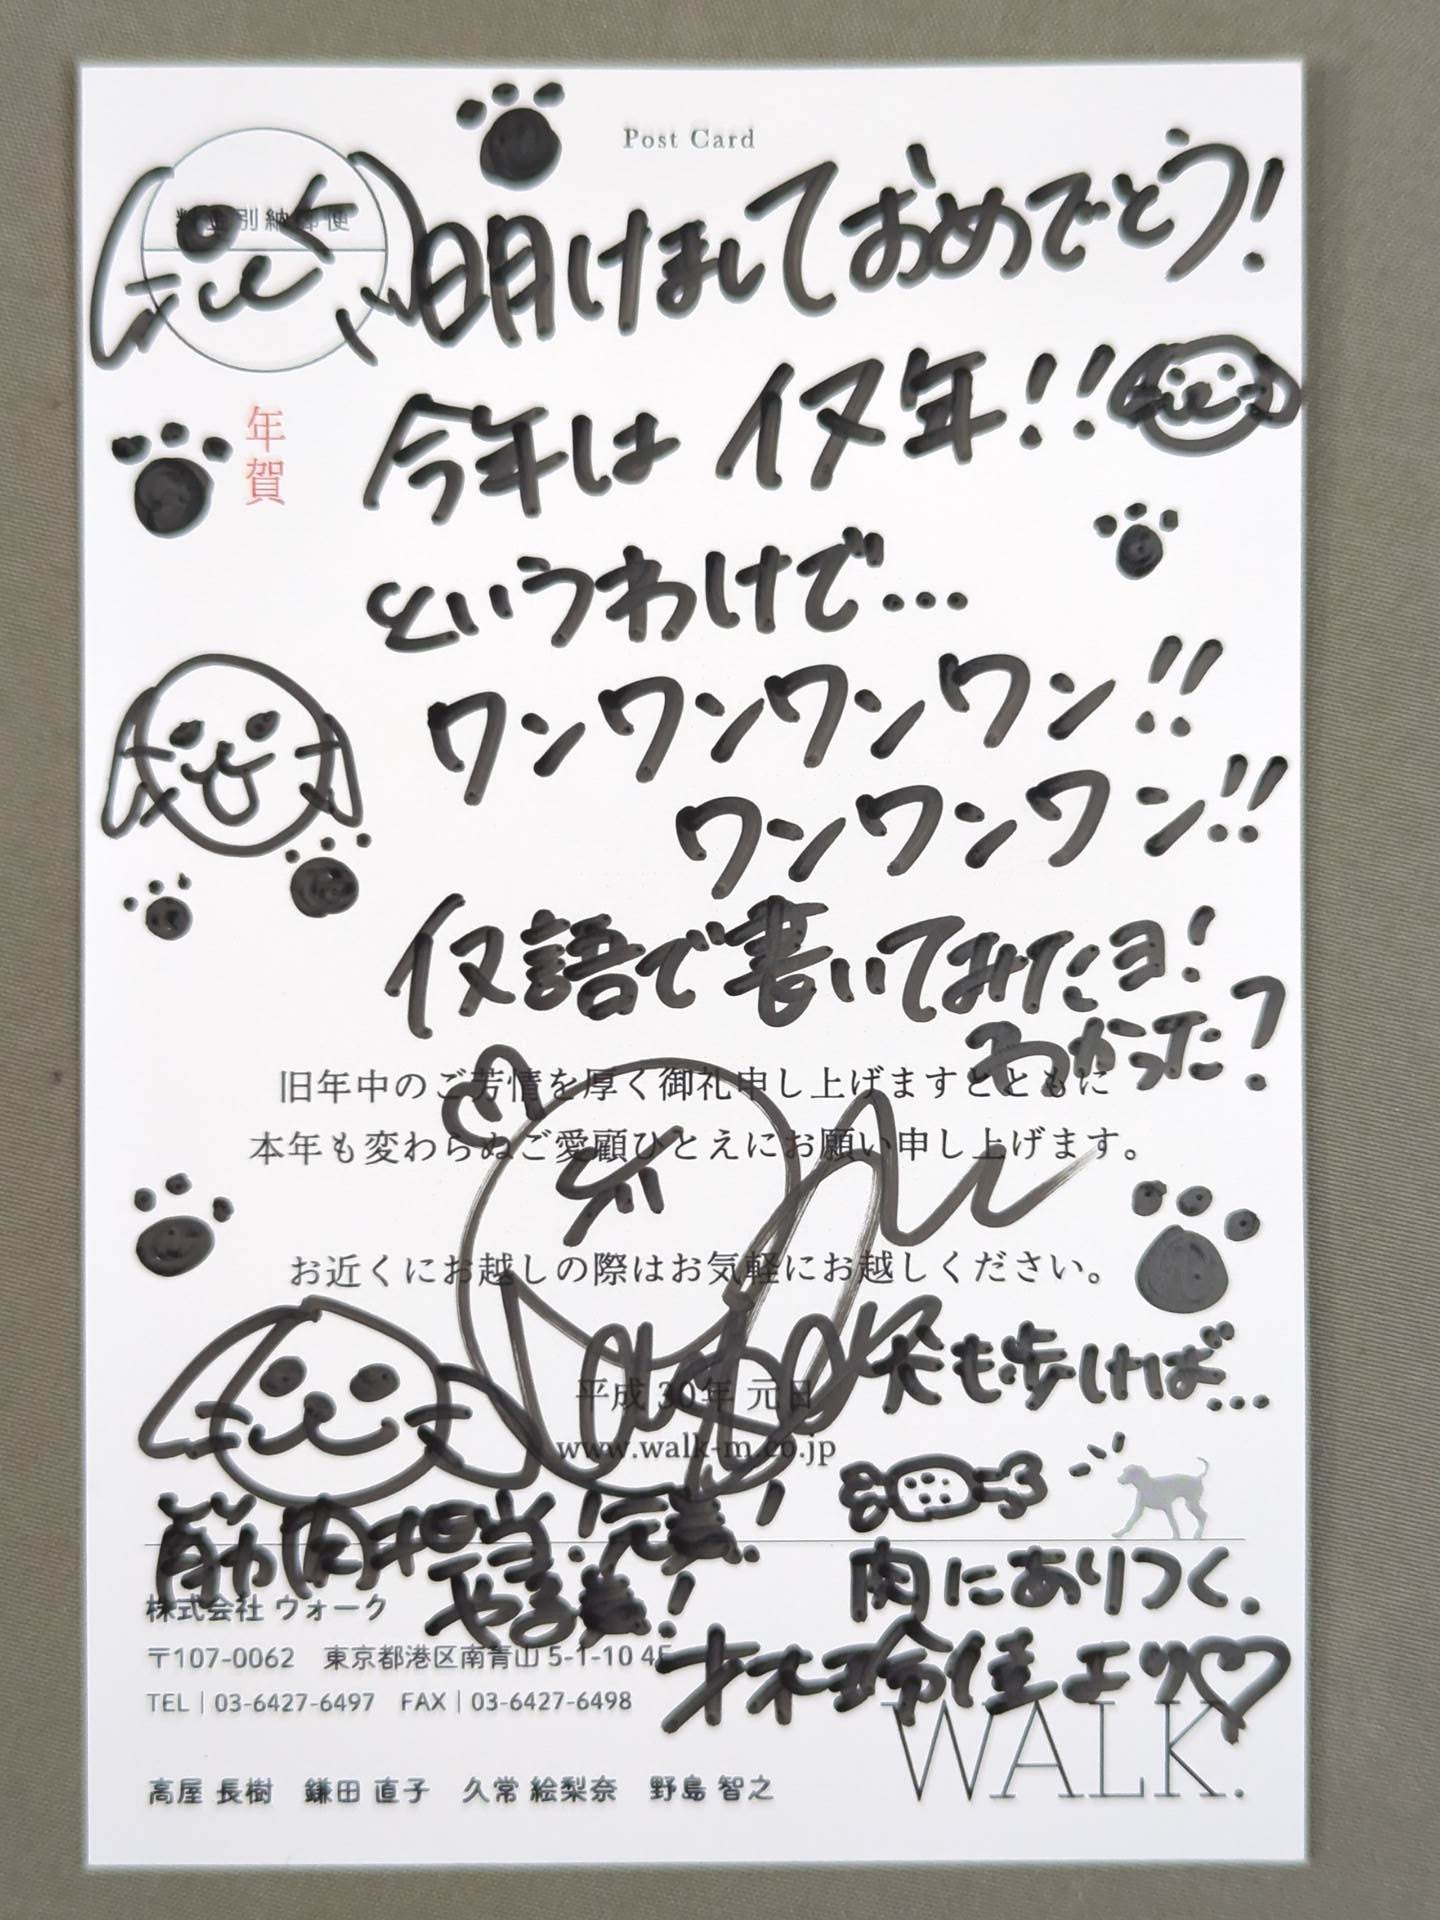 Post Card
料金別納郵便
明けましておめでとう!
年賀
今年は イヌ年!!
というわけで…
ワンワンワンワン!!
ワンワンワン!!
イヌ語で書いてみたヨ!
わかった?
旧年中のご芳情を厚く御礼申し上げますとともに
本年も変わらぬご愛顧ひとえにお願い申し上げます。
お近くにお越しの際はお気軽にお越しください。
犬も歩けば…
平成 30年 元日
www.walk-m.co.jp
筋肉担当!
肉にありつく.
株式会社 ウォーク
〒107-0062 東京都港区南青山 5-1-10 4F
才木玲佳より♡
TEL|03-6427-6497 FAX|03-6427-6498
WALK.
高屋 長樹 鎌田 直子 久常 絵梨奈 野島 智之